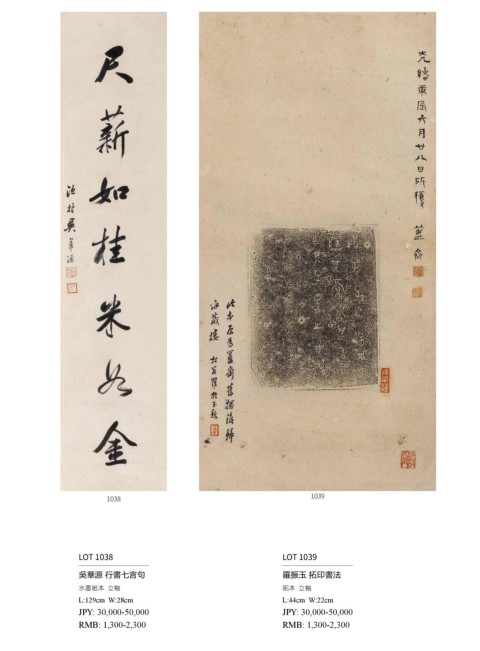 尺薪如桂米如金
漁村吳華源
光緒乘屆六月廿八日所獲 簠齋
此本原為簠齋舊物後歸
永藏樓 松翁羅振玉題
1038
1039
LOT 1038
吳華源 行書七言句
水墨紙本 立軸
L:129cm W:28cm
JPY: 30,000-50,000
RMB: 1,300-2,300
LOT 1039
羅振玉 拓印書法
拓本 立軸
L:44cm W:22cm
JPY: 30,000-50,000
RMB: 1,300-2,300